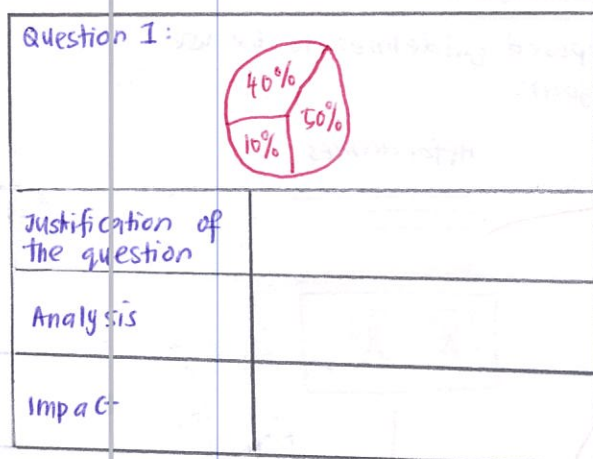 Question 1:
40%
50%
10%
Justification of
the question
Analysis
Impact